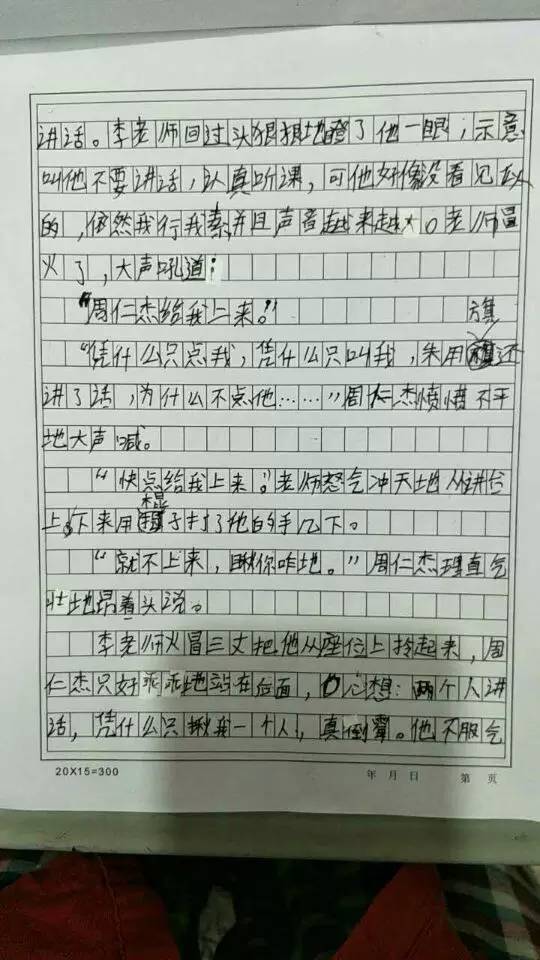 讲话。李老师回过头狠狠地瞪了他一眼；示意
叫他不要讲话，认真听课，可他好像没看见似
的，依然我行我素，并且声音越来越大。老师冒
火了，大声吼道：
“周仁杰给我上来。！”
旗
“凭什么只点我，凭什么只叫我，朱用还
讲了话，为什么不点他……”周仁杰愤愤不平
地大声喊。
“快点给我上来！”老师怒气冲天地从讲台
棍
上下来用子打了他的手几下。
“就不上来，瞅你咋地。”周仁杰理直气
壮地昂着头说。
李老师火冒三丈把他从座位上拎起来，周
仁杰只好乖乖地站在后面，心想：两个人讲
话，凭什么只揪我一个人，真倒霉。他不服气
20X15=300 年 月 日 第 页